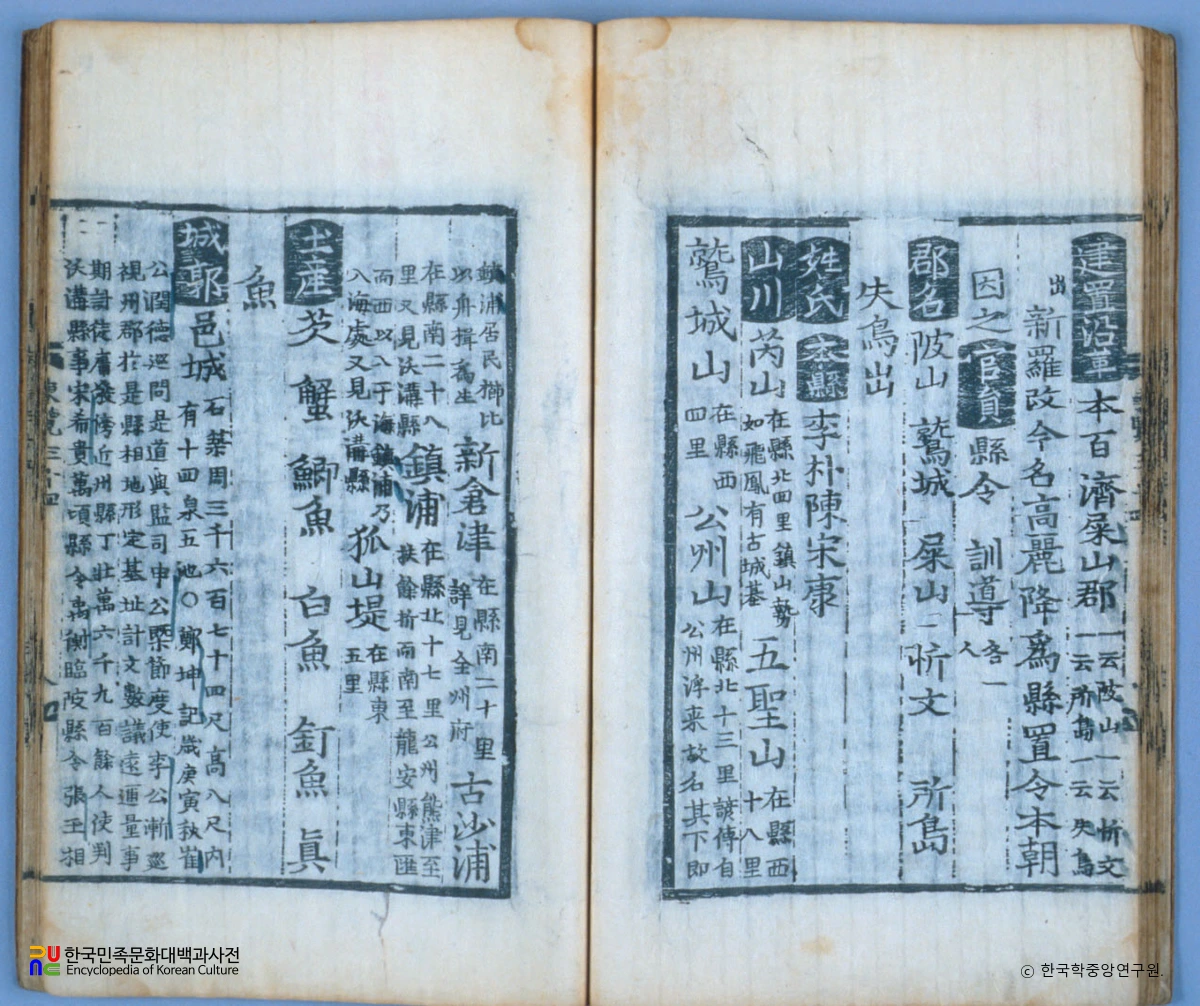 建置沿革 本百濟屎山郡 一云陂山一云忻文
一云所島一云失烏
出 新羅改今名高麗降爲縣置令本朝
因之 官員 縣令 訓導 各一
人
郡名 陂山 鷲城 屎山 忻文 所島
失烏出
姓氏 本縣 李朴陳宋康
山川 芮山 在縣北四里鎮山勢
如飛鳳有古城基 五聖山 在縣西
十八里
鷲城山 在縣西
四里 公州山 在縣北十三里諺傳自
公州浮来故名其下即
鎮浦居民櫛比
以舟揖爲生 新倉津 在縣南二十里
詳見全州府 古沙浦
在縣南二十八
里又見沃溝縣 鎮浦 在縣北十七里公州熊津至
扶餘折而南至龍安縣東匯
而西以入于海鎮浦乃
入海處又見沃溝縣 狐山堤 在縣東
五里
土産 芡 蟹 鯽魚 白魚 釘魚 眞
魚
城郭 邑城 石築周三千六百七十四尺高八尺内
有十四泉五池○鄭坤記歳庚寅秋崔
公潤德巡問是道與監司申公槩節度使李公漸巡
視州郡於是縣相地形定基址計文數議遠邇量事
期計徒庸發傍近州縣丁壯萬六千九百餘人使判
沃溝縣事宋希貴萬頃縣令禹衡臨陂縣令張玉相
한국민족문화대백과사전
Encyclopedia of Korean Culture
© 한국학중앙연구원.